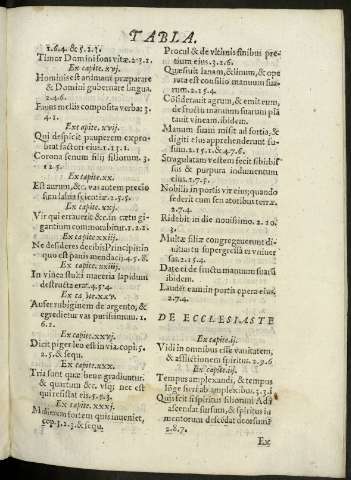 TABLA.
1.6.4. & 5.2.3.
Timor Domini fons vitæ. 2.3.1.
Ex capite. xvj.
Hominis est animam præparare
& Domini gubernare lingua.
2.4.6.
Favus mellis composita verba: 3.
4.1.
Ex capite. xvij.
Qui despicit pauperem expro
brat factori eius. 1.3.1.
Corona senum filij filiorum. 3.
12.5.
Ex capite. xx.
Est aurum, &c. vas autem precio
sum labia scientiæ. 2.5.5.
Ex capite. xxj.
Vir qui erraverit &c. in cœtu gi
gantium commorabitur. 1.2.2.
Ex capite xxiij.
Ne desideres de cibis Principis in
quo est panis mendacij: 4.5.8.
Ex capite. xxiiij.
In vinea stulti maceria lapidum
destructa erat. 4.5.4.
Ex capite. xxv.
Aufer rubiginem de argento, &
egredietur vas purissimum. 1.
6.2.
Ex capite. xxvj.
Dicit piger leo est in via. cop. 5.
2.5. & seq.
Ex capite. xxx.
Tria sunt quæ bene gradiuntur.
& quartum &c. nec est
qui resistat ei. 5.9.3.
Ex capite. xxxj.
Mulierem fortem quis inveniet,
cop. 3.2.3. & seq.
Procul & de vltimis finibus pre
tium eius. 3.2.6.
Quæsivit lanam, & linum, & ope
rata est consilio manuum sua-
rum. 2.15.4.
Consideravit agrum, & emit eum,
de fructu manuum suarum plã
tavit vineam. ibidem.
Manum suam misit ad fortia, &
digiti eius apprehenderunt fu-
sum. 2.15.2. & 4.7.6.
Stragulatam vestem fecit sibi bis
sus & purpura indumentum
eius. 1.7.5.
Nobilis in portis vir eius; quando
sederit cum senatoribus terræ.
2.7.4.
Ridebit in die novissimo. 2.10.
3.
Multæ filiæ congregaverunt di-
vitias tu supergressa es vniver
sas. 2.15.4.
Date ei de fructu manuum suarũ
ibidem.
Laudẽt eam in portis opera eius.
2.7.4.
DE ECCLESIASTE
Ex capite. ij.
Vidi in omnibus esse vanitatem,
& afflictionem spiritus. 2.9.6
Ex capite. iij.
Tempus amplexandi, & tempus
lõge fieri ab amplexibus. 5.3.1.
Quis scit si spiritus filiorum Adã
ascendat sursum, & spiritus iu
mentorum descendat deorsum?
2.8.7.
Ex